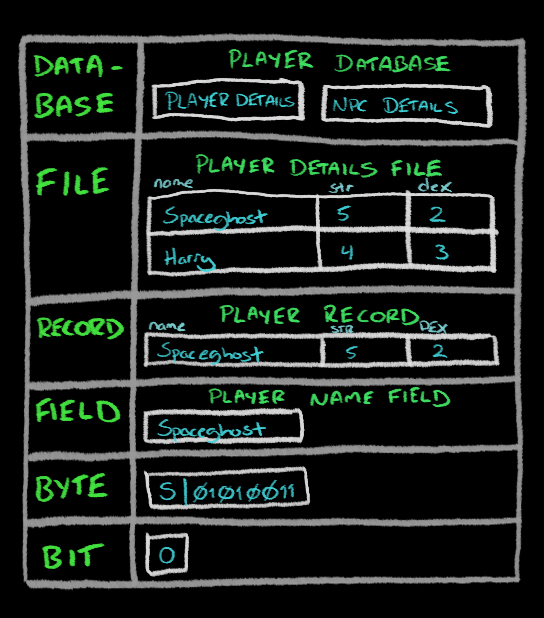 DATA-
BASE
PLAYER DATABASE
PLAYER DETAILS
NPC DETAILS
FILE
PLAYER DETAILS FILE
name str dex
Spaceghost 5 2
Harry 4 3
RECORD
PLAYER RECORD
name STR DEX
Spaceghost 5 2
FIELD
PLAYER NAME FIELD
Spaceghost
BYTE
S | 01010011
BIT
0